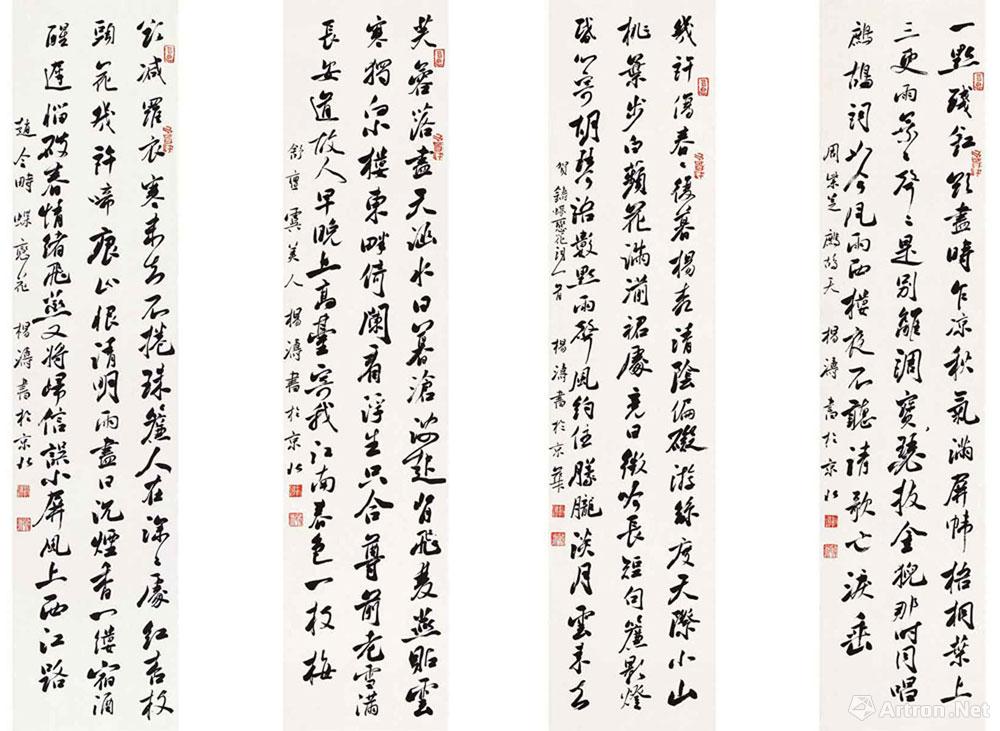 一點殘紅欲盡時乍凉秋氣滿屏幃梧桐葉上
三更雨葉〻聲〻是別離調寶瑟拔金猊那时同唱
鷓鴣詞如今風雨西樓夜不聽清歌也淚垂
周紫芝 鷓鴣天 楊濤書於京北
幾許傷春〻復暮楊柳清陰偏礙游絲度天際小山
桃葉步白蘋花滿湔裙處竟日微吟長短句簾影燈
昏心寄胡琴語數點雨聲風約住朦朧淡月雲來去
賀鑄蝶戀花詞一首 楊濤書於京華
芙蓉落盡天涵水日暮滄波起背飛雙燕貼雲
寒獨向小樓東畔倚闌看浮生只合尊前老雪滿
長安道故人早晚上高臺寄我江南春色一枝梅
舒亶 虞美人 楊濤書於京北
欲減羅衣寒未去不捲珠簾人在深〻處紅杏枝
頭花幾許啼痕止恨清明雨盡日沉煙香一縷宿酒
醒遲惱破春情緒飛燕又將歸信誤小屏風上西江路
趙令時 蝶戀花 楊濤書於京北
Artron.Net